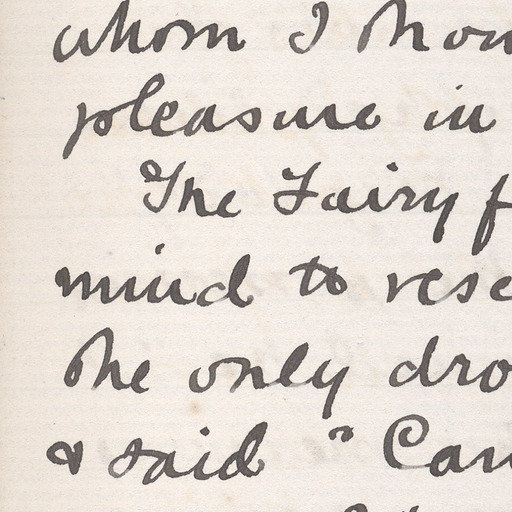 whom I shou
pleasure in
The Fairy f
mind to rese
she only dro
& said " Can